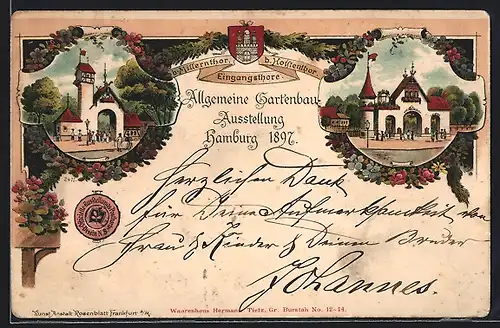 b. Millernthor.
b. Holstenthor.
Eingangsthore.
Allgemeine Gartenbau-
Ausstellung
Hamburg 1897.
Herzlichen Dank
für Deine Aufmerksamkeit von
Frau & Kinder & Deinem Bruder
Johannes.
Kunst-Anstalt Rosenblatt Frankfurt a/M.
Waarenhaus Hermann Tietz, Gr. Burstah No. 12-14.